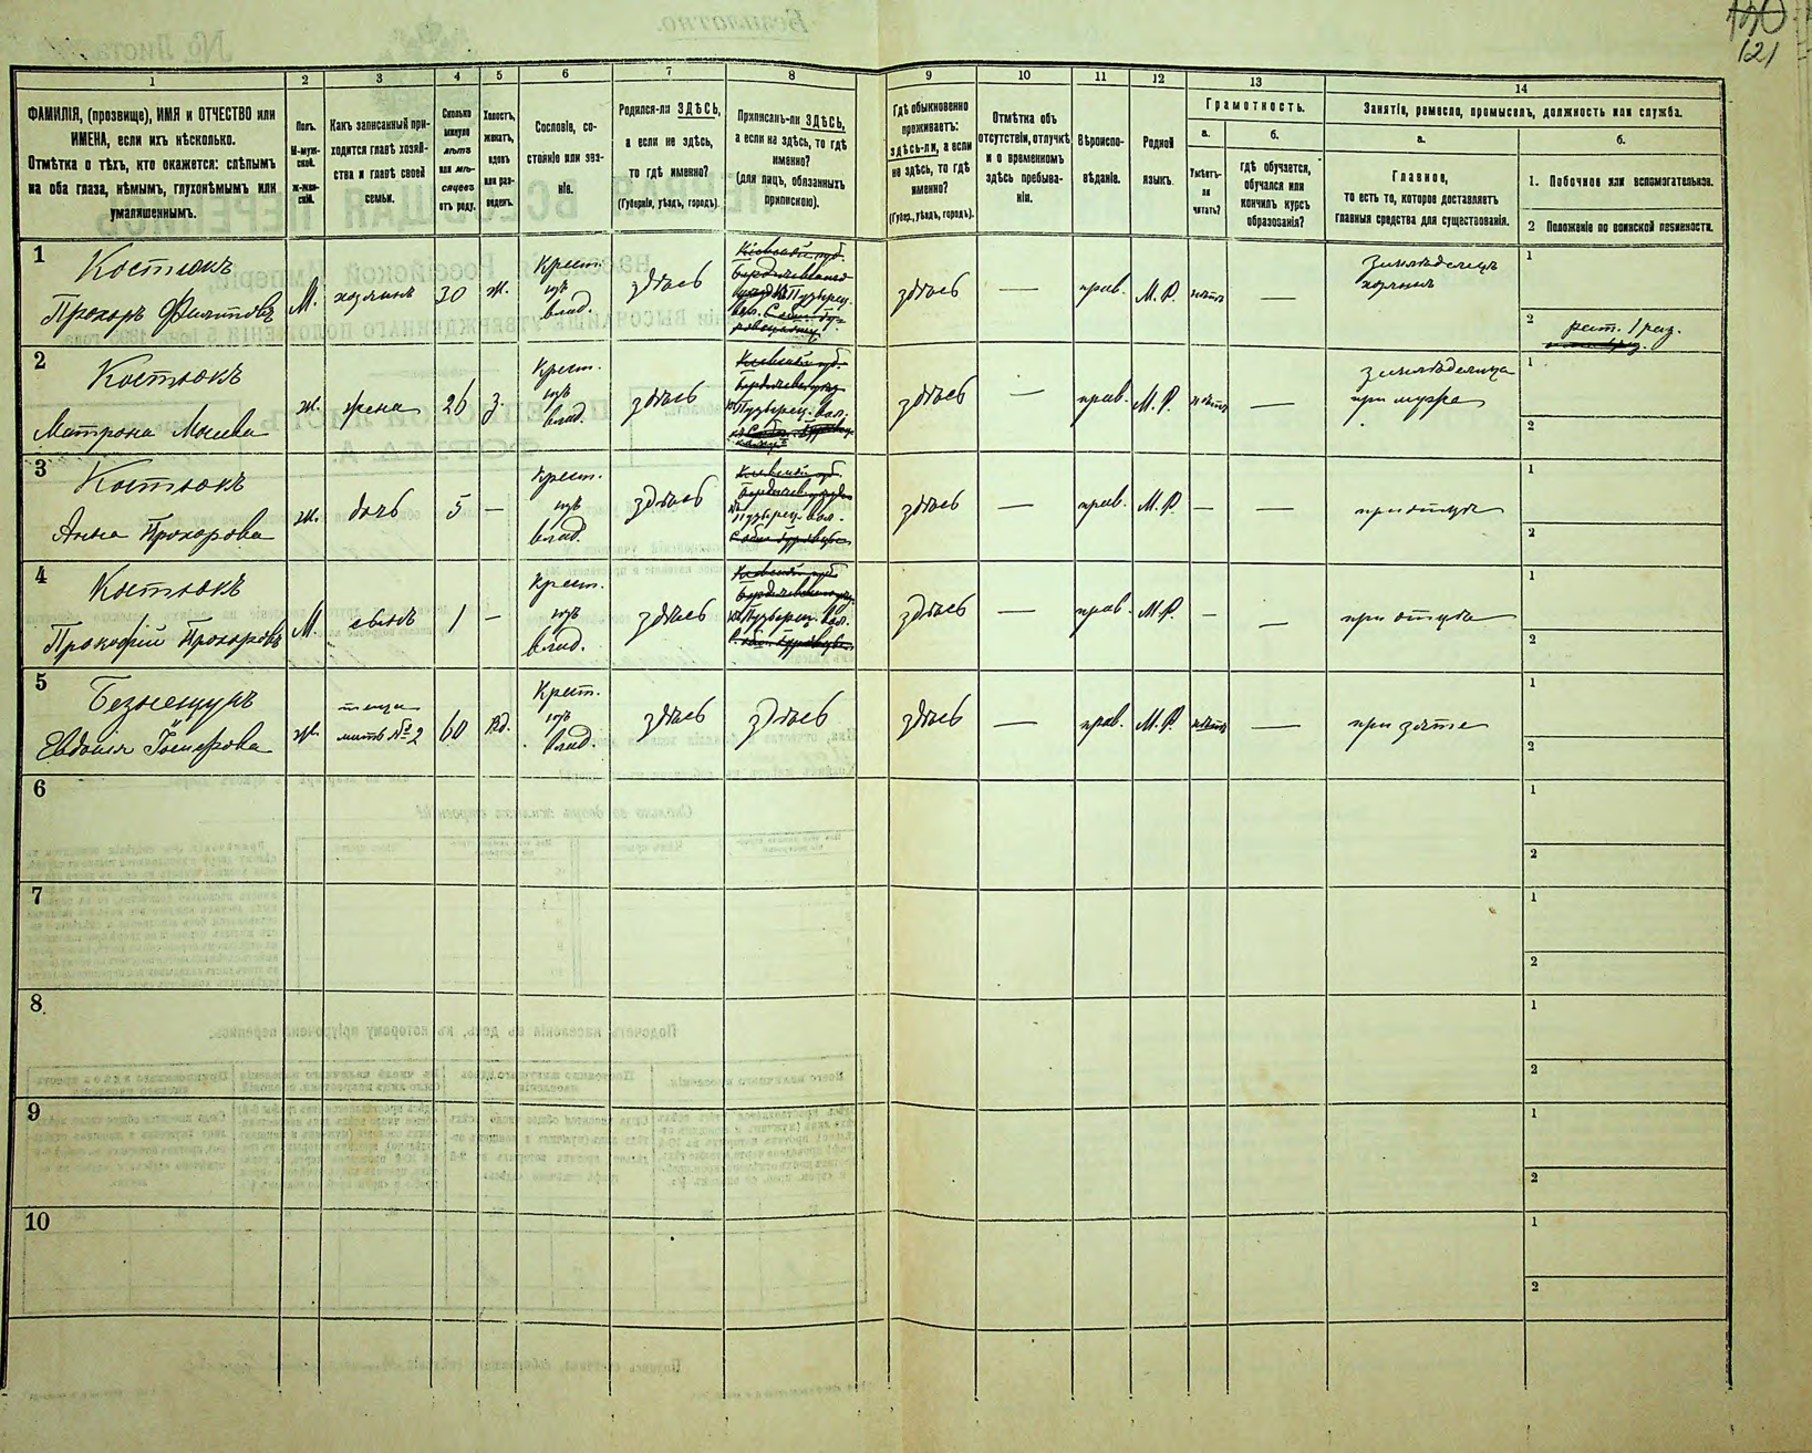 130
121
1 2 3 4 5 6 7 8 9 10 11 12 13 14
ФАМИЛІЯ, (прозвище), ИМЯ и ОТЧЕСТВО или
ИМЕНА, если ихъ нѣсколько.
Отмѣтка о тѣхъ, кто окажется: слѣпымъ
на оба глаза, нѣмымъ, глухонѣмымъ или
умалишеннымъ.
Полъ.
М-муж-
ской.
Ж-жен-
скій.
Какъ записанный при-
ходится главѣ хозяй-
ства и главѣ своей
семьи.
Сколько
минуло
лѣтъ
или мѣ-
сяцевъ
отъ роду.
Холостъ,
женатъ,
вдовъ
или раз-
веденъ.
Сословіе, со-
стояніе или зва-
ніе.
Родился-ли ЗДѢСЬ,
а если не здѣсь,
то гдѣ именно?
(Губернія, уѣздъ, городъ).
Приписанъ-ли ЗДѢСЬ,
а если не здѣсь, то гдѣ
именно?
(для лицъ, обязанныхъ
припискою).
Гдѣ обыкновенно
проживаетъ:
здѣсь-ли, а если
не здѣсь, то гдѣ
именно?
(Губер., уѣздъ, городъ).
Отмѣтка объ
отсутствіи, отлучкѣ
и о временномъ
здѣсь пребыва-
ніи.
Вѣроиспо-
вѣданіе.
Родной
языкъ.
Грамотность.
а.
Умѣетъ-
ли
читать?
б.
гдѣ обучается,
обучался или
кончилъ курсъ
образованія?
Занятіе, ремесло, промыселъ, должность или служба.
а.
Главное,
то есть то, которое доставляетъ
главныя средства для существованія.
б.
1. Побочное или вспомогательное.
2 Положеніе по воинской повинности.
1
Костюкъ
Прохоръ Филиповъ
М.
хозяинъ
30
ж.
Крест.
изъ
влад.
здѣсь
Кіевской губ.
Бердичевскаго
Пузырец.
вол.
здѣсь
—
прав.
М. Р.
нѣтъ
—
земледѣлецъ
хозяинъ
1
2
рат. 1 раз.
2
Костюкъ
Матрона
ж.
жена
26
З.
Крест.
изъ
влад.
здѣсь
Кіевской губ.
Пузырец. вол.
здѣсь
—
прав.
М. Р.
нѣтъ
—
земледѣлица
при мужѣ
1
2
3
Костюкъ
Анна Прохорова
ж.
дочь
5
—
Крест.
изъ
влад.
здѣсь
Кіевской губ.
Пузырец. вол.
здѣсь
—
прав.
М. Р.
—
—
при отцѣ
1
2
4
Костюкъ
Прокофій Прохоровъ
М.
сынъ
1
—
Крест.
изъ
влад.
здѣсь
Кіевской губ.
Пузырец. вол.
здѣсь
—
прав.
М. Р.
—
—
при отцѣ
1
2
5
Безнещукъ
Евдокія
ж.
теща
мать № 2
60
вд.
Крест.
изъ
влад.
здѣсь
здѣсь
здѣсь
—
прав.
М. Р.
нѣтъ
—
при зятѣ
1
2
6
1
2
7
1
2
8
1
2
9
1
2
10
1
2